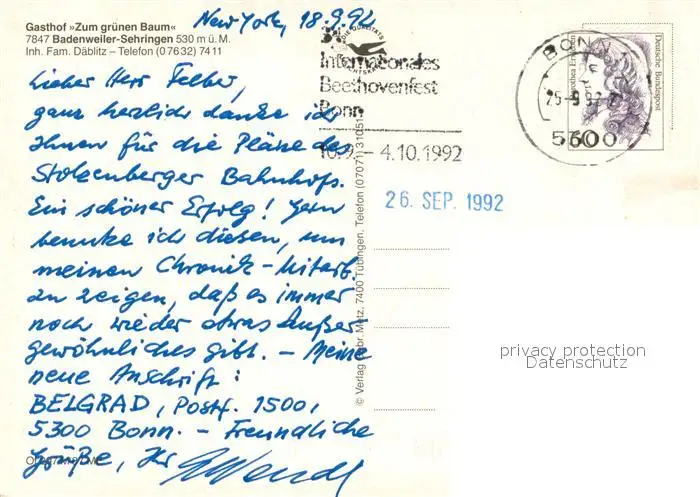 Gasthof »Zum grünen Baum«
7847 Badenweiler-Sehringen 530 m ü. M.
Inh. Fam. Däblitz – Telefon (0 76 32) 74 11
New York, 18.9.92
Lieber Herr Felber,
ganz herzlich danke ich
Ihnen für die Pläne des
Stolzenberger Bahnhofs.
Ein schöner Erfolg! Gern
benutze ich diesen, um
meinen Chronik-Mitarb.
zu zeigen, daß es immer
noch wieder etwas Außer-
gewöhnliches gibt. – Meine
neue Anschrift:
BELGRAD, Postf. 1500,
5300 Bonn. – Freundliche
Grüße, Ihr
Internationales
Beethovenfest
Bonn
– 4.10.1992
BONN
5300
Deutsche Bundespost
26. SEP. 1992
© Verlag Gebr. Metz, 7400 Tübingen, Telefon (07071) 31051
privacy protection
Datenschutz